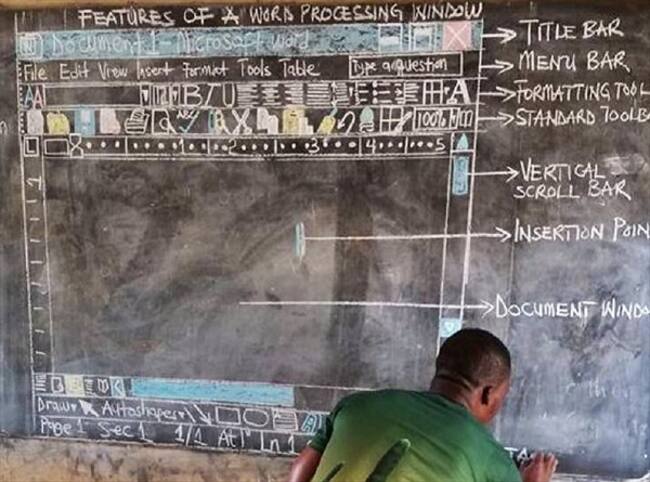 FEATURES OF A WORD PROCESSING WINDOW
Document 1 - Microsoft word
TITLE BAR
File Edit View Insert Format Tools Table
Type a question
MENU BAR
A A
B I U
A
FORMATTING TOOL
100%
STANDARD TOOLB
L
1 2 3 4 5
VERTICAL
SCROLL BAR
INSERTION POIN
DOCUMENT WINDO
Draw Autoshapes
Page 1 Sec 1 1/1 At 1" Ln 1
STA